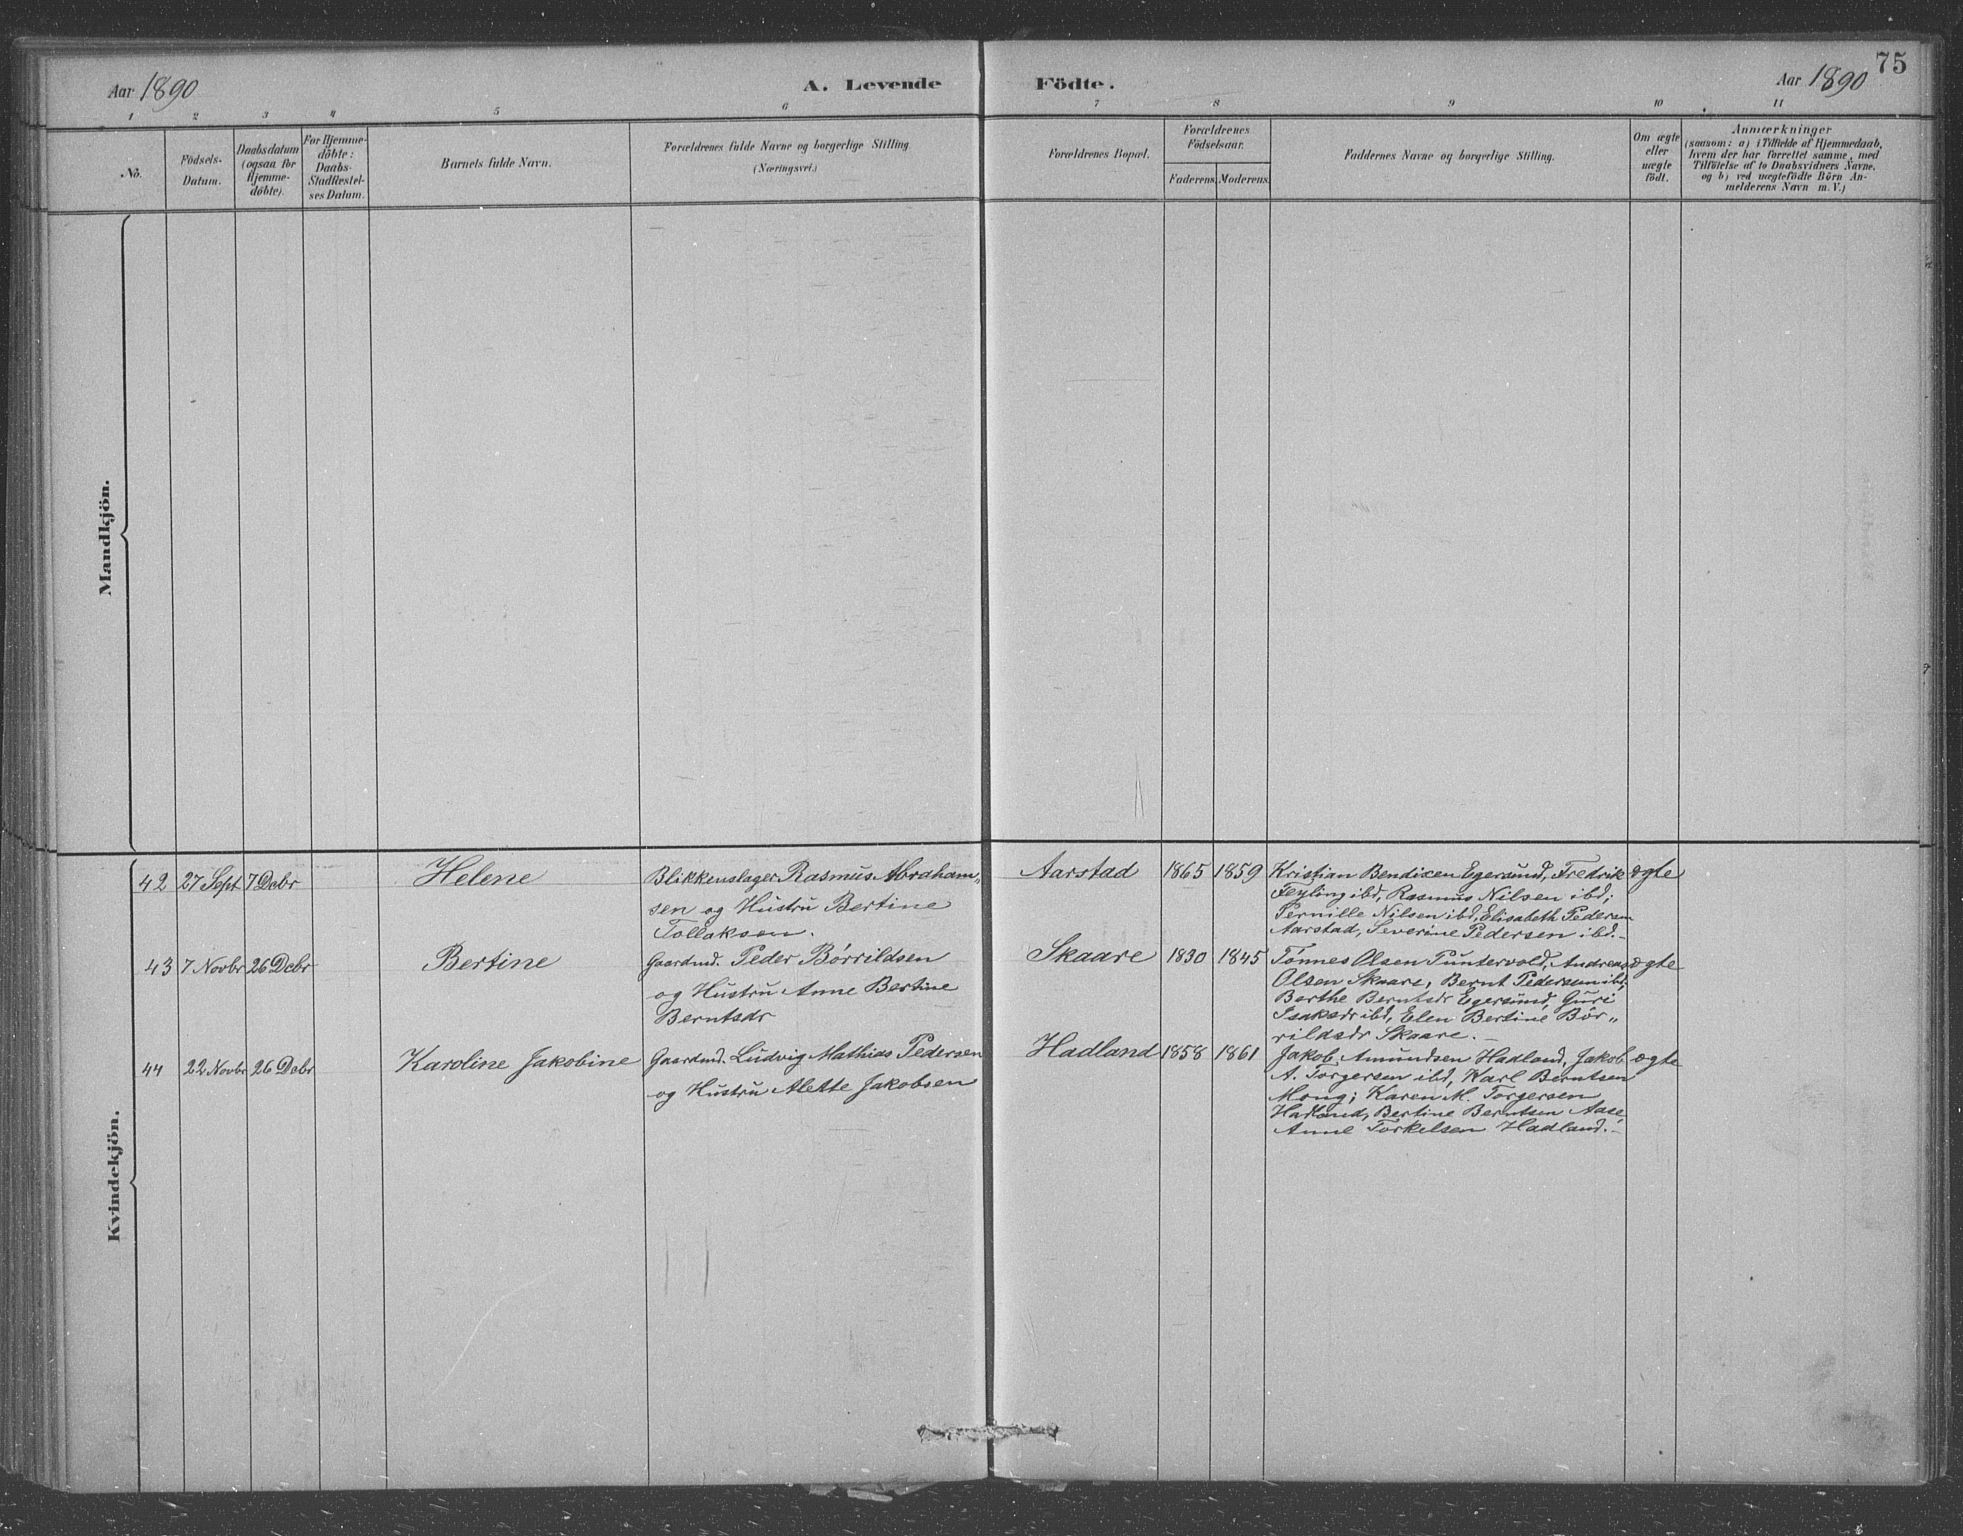 75
Aar 1890 A. Levende Födte. Aar 1890
1 2 3 4 5 6 7 8 9 10 11
No.
Födsels-
Datum.
Daabsdatum
(ogsaa for
Hjemme-
döbte).
For Hjemme-
döbte:
Daabs-
Stadfæstel-
ses Datum.
Barnets fulde Navn.
Forældrenes fulde Navne og borgerlige Stilling
(Næringsvei.)
Forældrenes Bopæl.
Forældrenes
Födselsaar.
Faderens. Moderens.
Faddernes Navne og borgerlige Stilling.
Om ægte
eller
uægte
födt.
Anmærkninger
(saasom: a) i Tilfælde af Hjemmedaab,
hvem der har forrettet samme, med
Tilföielse af to Daabsvidners Navne,
og b) ved uægtefödte Börn An-
melderens Navn m. V.)
Mandkjön.
Kvindekjön.
42 27 Sept 7 Debr Helene
Blikkenslager Rasmus Abraham„
sen og Hustru Bertine
Tollaksen.
Aarstad 1865 1859
Kristian Bendixen Egersund, Fredrik
Feyling ibd, Rasmus Nilsen ibd;
Pernille Nilsen ibd, Elisabeth Pedersen
Aarstad, Severine Pedersen ibd.
ægte
43 7 Novbr 26 Debr Bertine
Gaardmd. Peder Börrildsen
og Hustru Anne Bertine
Berntsdr
Skaare 1830 1845
Tönnes Olsen Puntervold, Andreas
Olsen Skaare, Bernt Pedersen ibd;
Berthe Berntsdr Egersund, Guri
Isaksdr ibd, Elen Bertine Bör„
rildsdr Skaare.
ægte
44 22 Novbr 26 Debr Karoline Jakobine
Gaardmd. Ludvig Mathias Pedersen
og Hustru Alette Jakobsen
Hadland 1858 1861
Jakob Amundsen Hadland, Jakob
A. Torgersen ibd, Karl Berntsen
Mong; Karen M. Torgersen
Hadland, Bertine Berntsen Aase,
Anne Torkelsen Hadland.
ægte